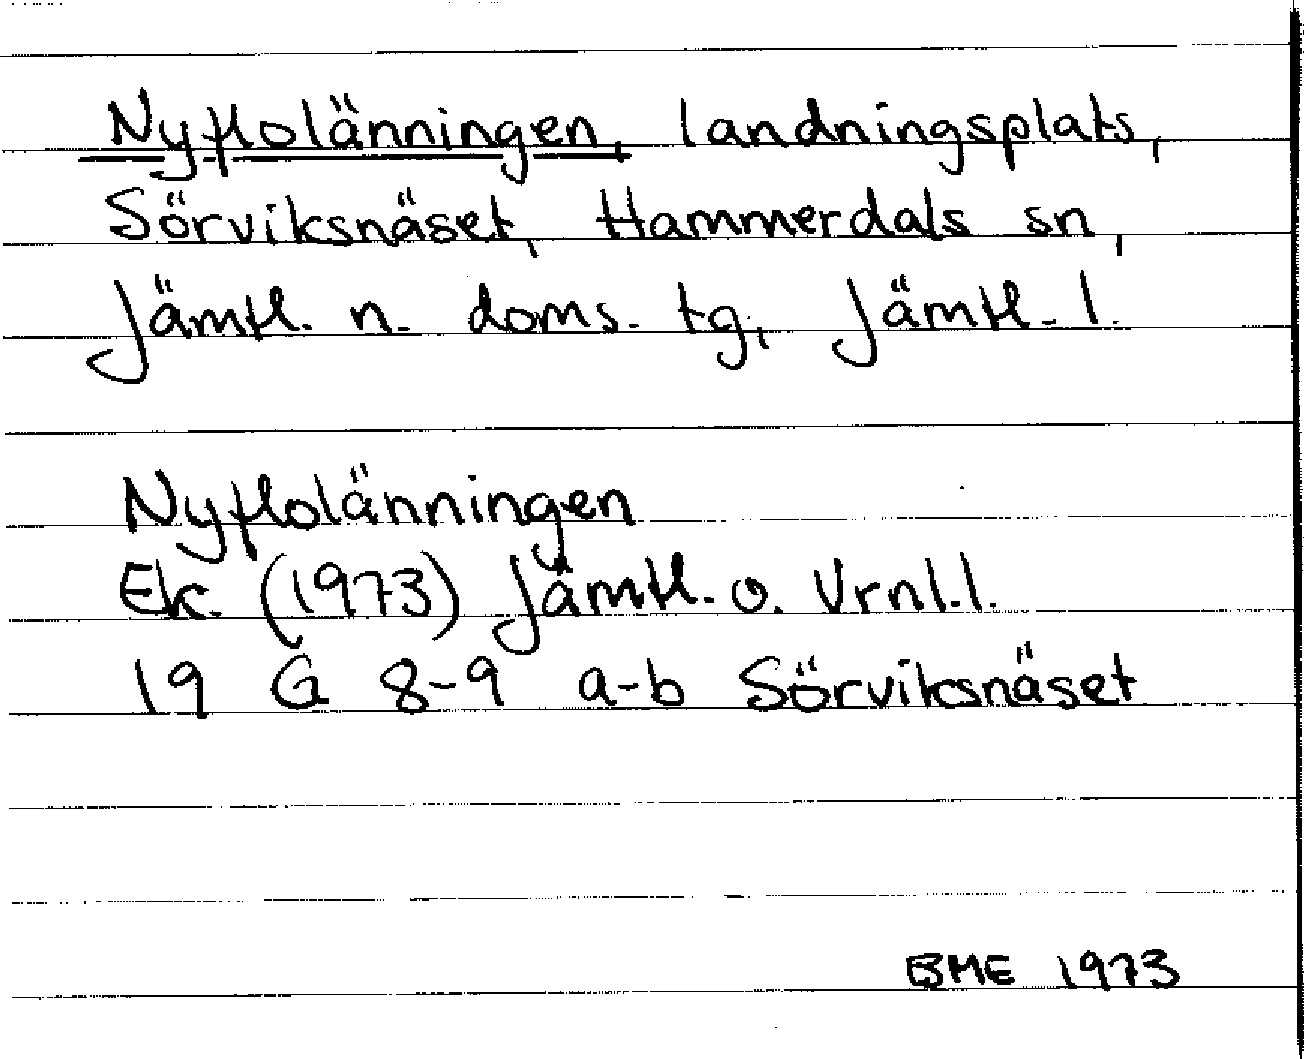 Nyflolänningen, landningsplats,
Sörviksnäset, Hammerdals sn,
Jämtl. n. doms. tg, Jämtl. l.
Nyflolänningen
Ek. (1973) Jämtl. o. Vrnl.l.
19 G 8-9 a-b Sörviksnäset
BME 1973